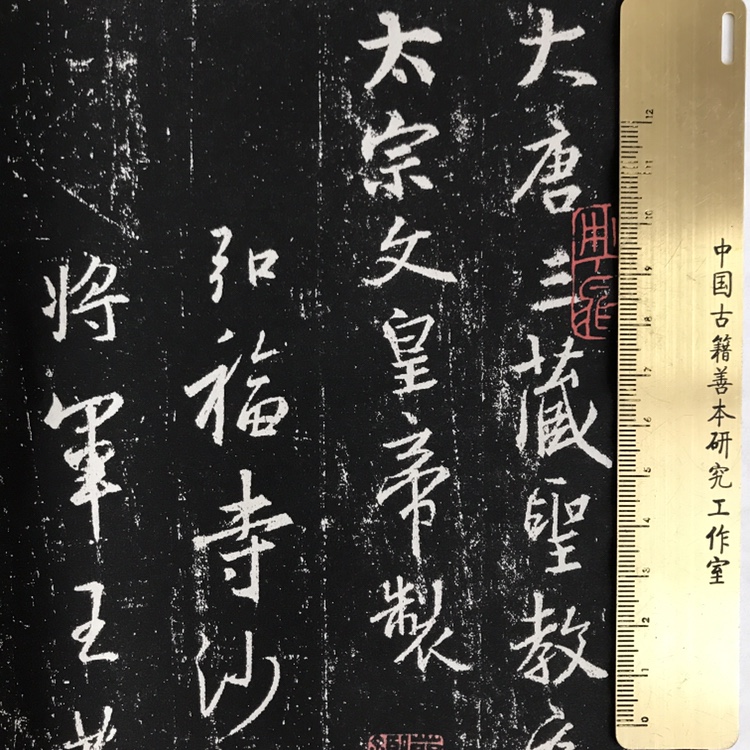 大唐三藏聖教
太宗文皇帝製
弘福寺沙
將軍王
中国古籍善本研究工作室
12
11
10
9
8
7
6
5
4
3
2
1
0